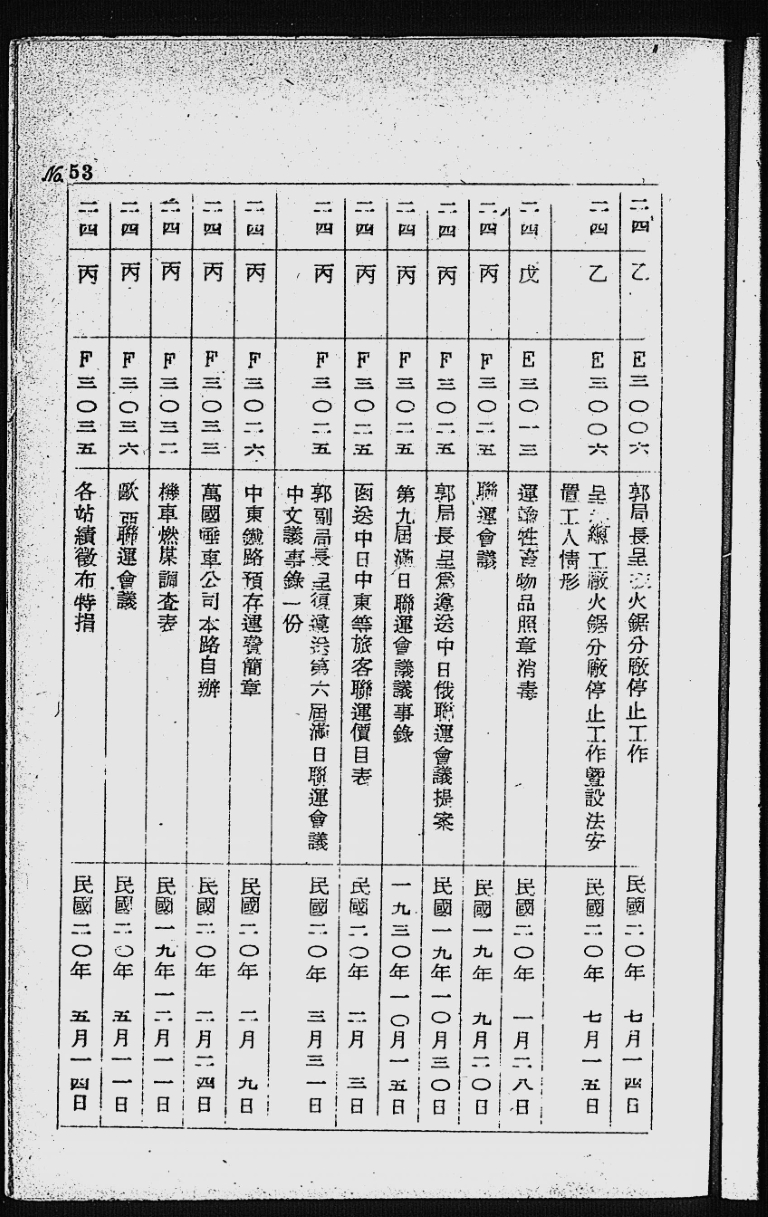 No. 53
二四 乙 E三〇〇六 郭局長呈 火鋸分廠停止工作 民國二〇年 七月一四日
二四 乙 E三〇〇六 呈 總工廠火鋸分廠停止工作曁設法安
置工人情形 民國二〇年 七月一五日
二四 戊 E三〇一三 運輸牲畜物品照章消毒 民國二〇年 一月二八日
二四 丙 F三〇二五 聯運會議 民國一九年 九月二〇日
二四 丙 F三〇二五 郭局長呈爲遵送中日俄聯運會議提案 民國一九年一〇月三〇日
二四 丙 F三〇二五 第九屆滿日聯運會議議事錄 一九三〇年一〇月一五日
二四 丙 F三〇二五 函送中日中東等旅客聯運價目表 民國二〇年 二月 三日
二四 丙 F三〇二五 郭副局長呈復遵送第六屆滿日聯運會議
中文議事錄一份 民國二〇年 三月三一日
二四 丙 F三〇二六 中東鐵路預存運費簡章 民國二〇年 二月 九日
二四 丙 F三〇三三 萬國睡車公司本路自辦 民國二〇年 二月二四日
二四 丙 F三〇三二 機車燃煤調査表 民國一九年一二月一一日
二四 丙 F三〇三六 歐亞聯運會議 民國二〇年 五月一一日
二四 丙 F三〇三五 各站續徵布特捐 民國二〇年 五月一四日